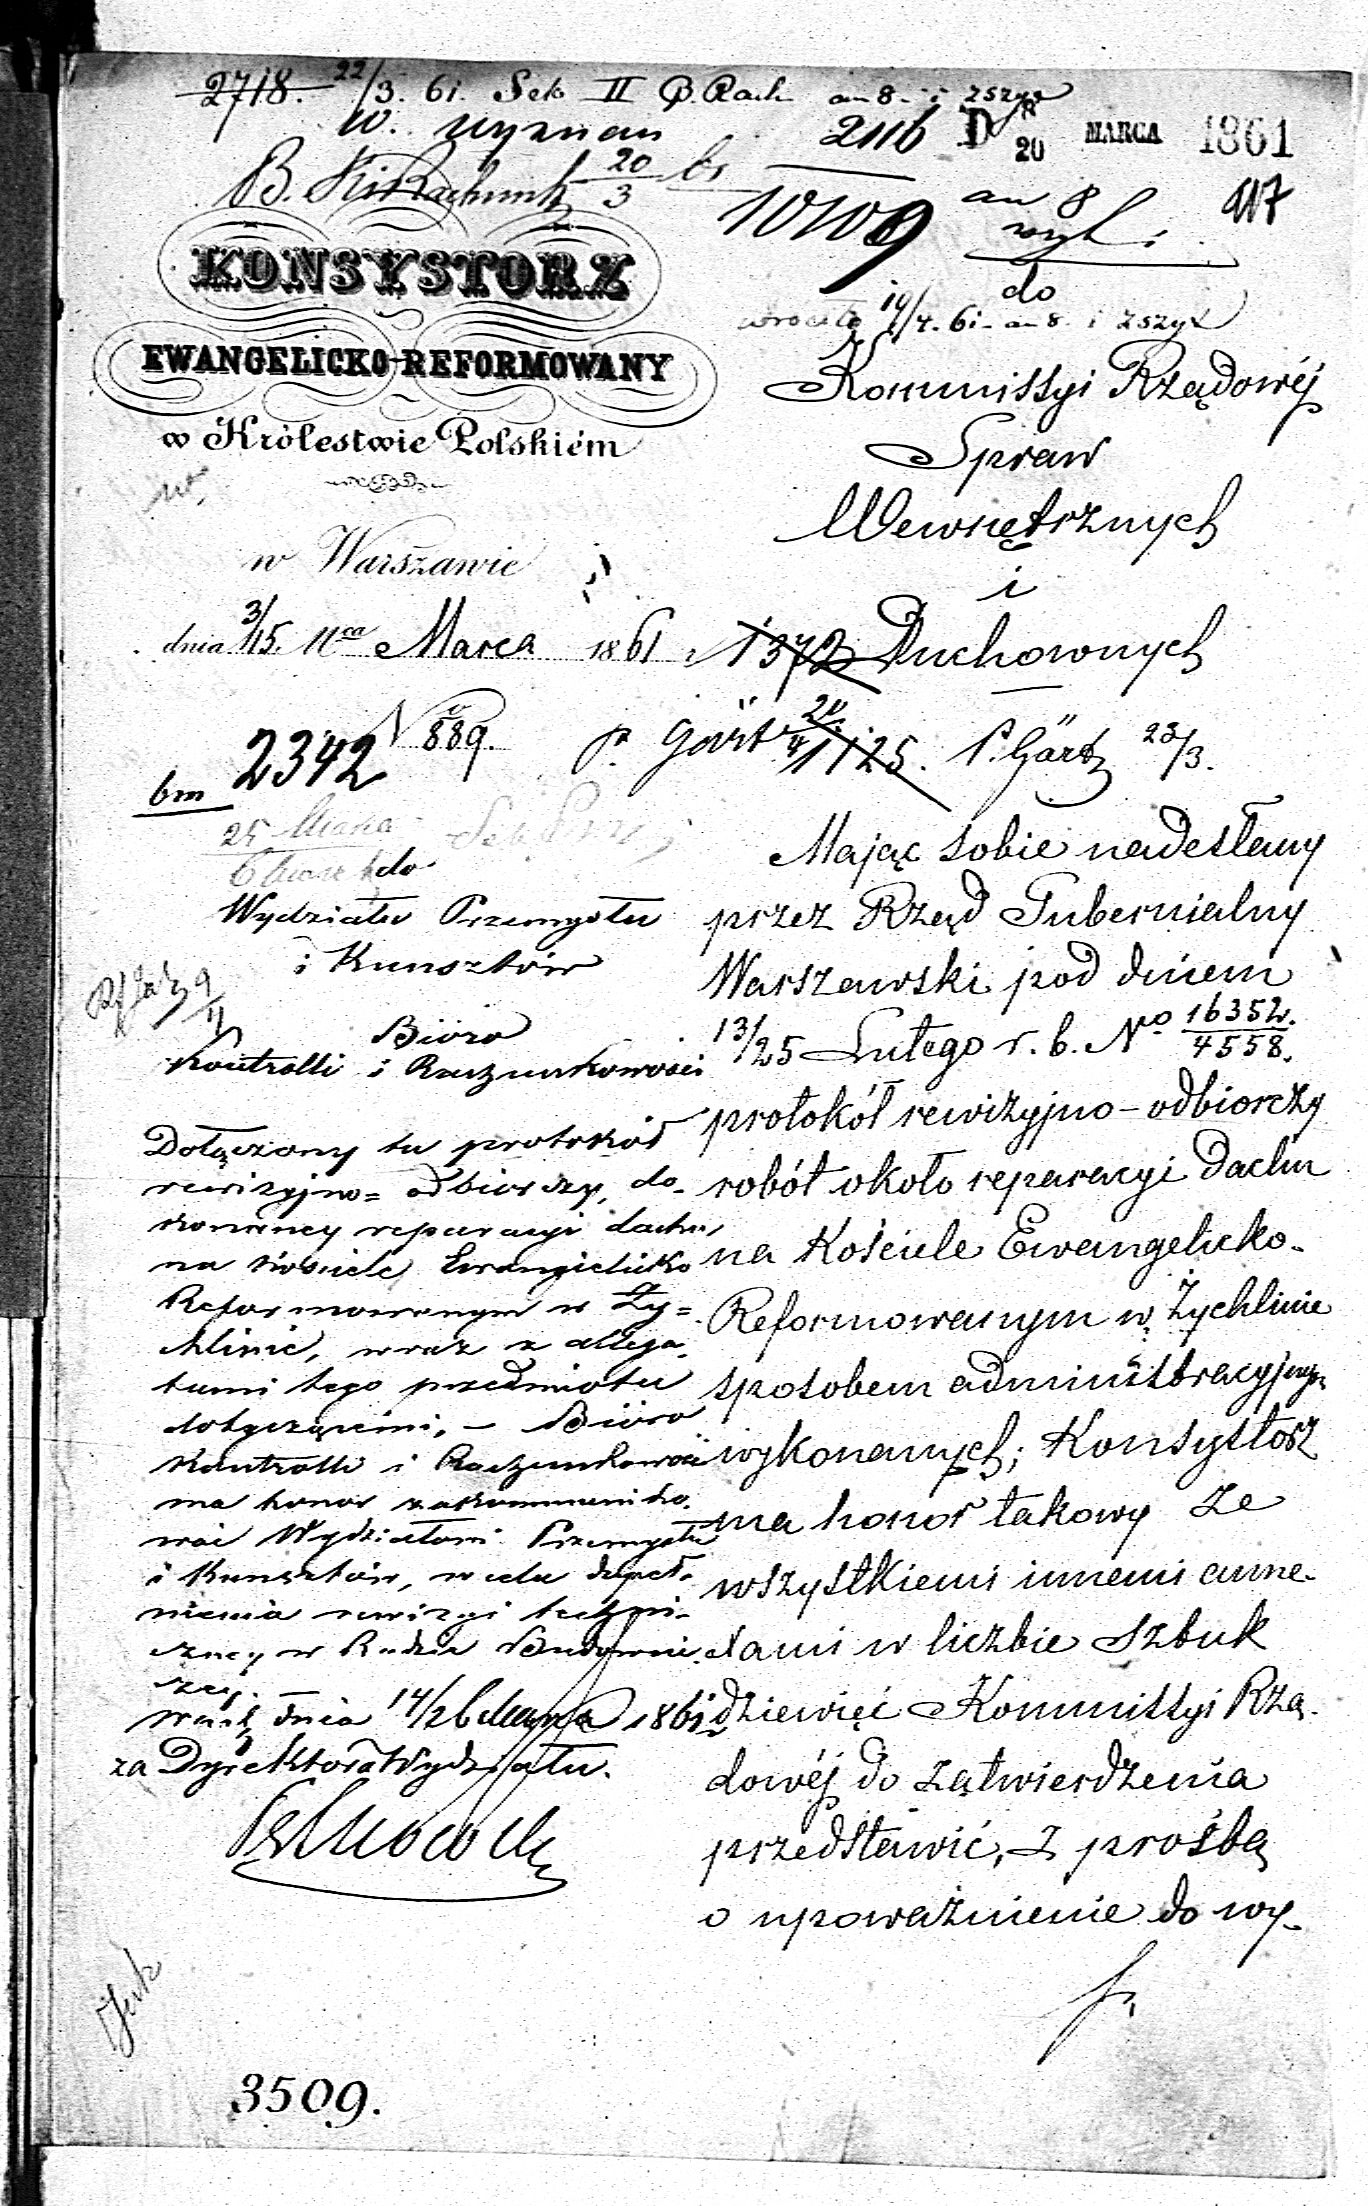 2718. 22/3. 61. Sek II B. Rach an 8. i zszyx
W. wyznan 2116 D 20 MARCA 1861
B. K i Rachunk 20/3 an 8 117
10109
KONSYSTORZ
EWANGELICKO-REFORMOWANY
w Królestwie Polskiém
w Warszawie
dnia 3/15. Mca Marca 1861
No 889.
2342
bm
do
wróciło 10/4. 61 an 8 i zszyx
Kommissyi Rządowéj
Spraw
Wewnętrznych
i
1372 Duchownych
P. Gärtz 1125. P. Gärtz 23/3.
Mając sobie nadesłany
przez Rząd Gubernialny
Warszawski pod dniem
13/25 Lutego r. b. No 16352./4558.
protokół rewizyjno-odbiorczy
robót około reparacyi dachu
na Kościele Ewangelicko-
Reformowanym w Żychlinie
sposobem administracyjnym
wykonanych; Konsystorz
ma honor takowy ze
wszystkiemi innemi anne-
xami w liczbie sztuk
dziewięć Kommissyi Rzą-
dowéj do zatwierdzenia
przedstawić, z prośbą
o upoważnienie do wy-
25 Marca
do
Wydziału Przemysłu
i Kunsztów
Biuro
Kontrolli i Rachunkowości
Dołączony tu protokół
rewizyjno=odbiorczy, do-
konaney reparacyi dachu
na kościele Ewangielicko
Reformowanym w Ży=
chlinie, wraz z allega-
tami tego przedmiotu
dotyczącemi, – Biuro
Kontrolli i Rachunkowości
ma honor zakommuniko-
wać Wydziałowi Przemysłu
i Kunsztów, w celu dopeł-
nienia rewizyi techni-
czney w Radzie Budowni-
czey.
Warsz. dnia 14/26 Marca 1861 r.
za Dyrektora Wydziału.
3509.